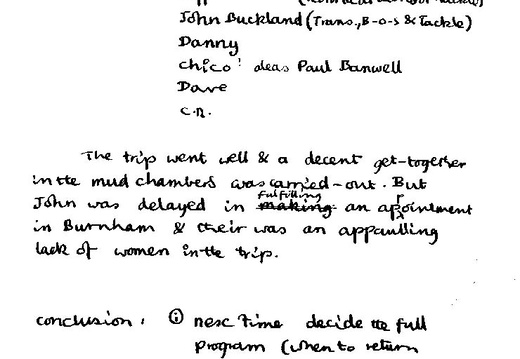 John Buckland (Trans., B-O-S & Tackle)
Danny
Chico! aleas Paul Banwell
Dave
C.N.
The trip went well & a decent get-together
in the mud chambers was carried-out. But
John was delayed in making fulfilling an appointment
in Burnham & their was an appaulling
lack of women in the trip.
conclusion: ① nesc Time decide the full
program (when to return